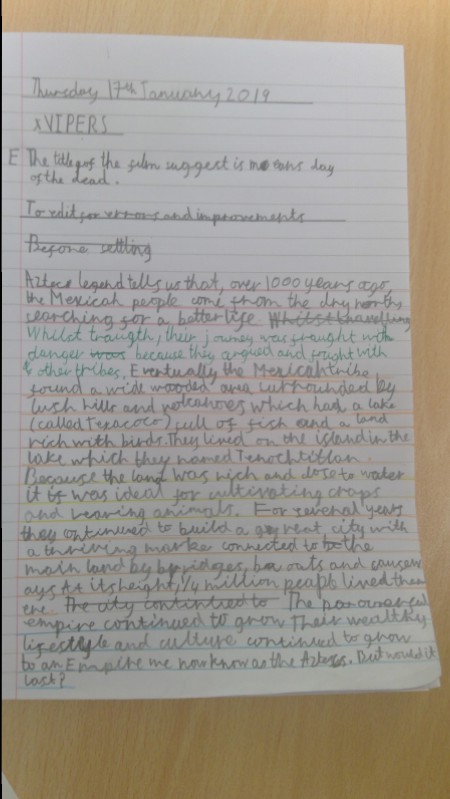 Thursday 17th January 2019
x VIPERS
E The title of the film suggest is means day
of the dead.
To edit for errors and improvements
Before settling
Aztecs legend tells us that, over 1000 years ago,
the Mexicah people come from the dry north,
searching for a better life Whilst travelling
Whilst traugth, their journey was fraught with
danger was because they argued and fought with
& other tribes. Eventually the Mexicah tribe
found a wide wooded area surrounded by
lush hills and volcanoes which had a lake
(called Texacoco) full of fish and a land
rich with birds. They lived on the island in the
lake which they named Tenochtitlan.
Because the land was rich and close to water
it is was ideal for cultivating crops
and rearing animals. For several years
they continued to build a great city with
a thriving market connected to the
main land by bridges, boats and causew
ays. At its height, 1/4 million peapl lived then
ere. The city continued to The powerful
empire continued to grow Their wealthy
lifestyle and culture continued to grow
to an Empire we now know as the Aztecs. But would it
last?